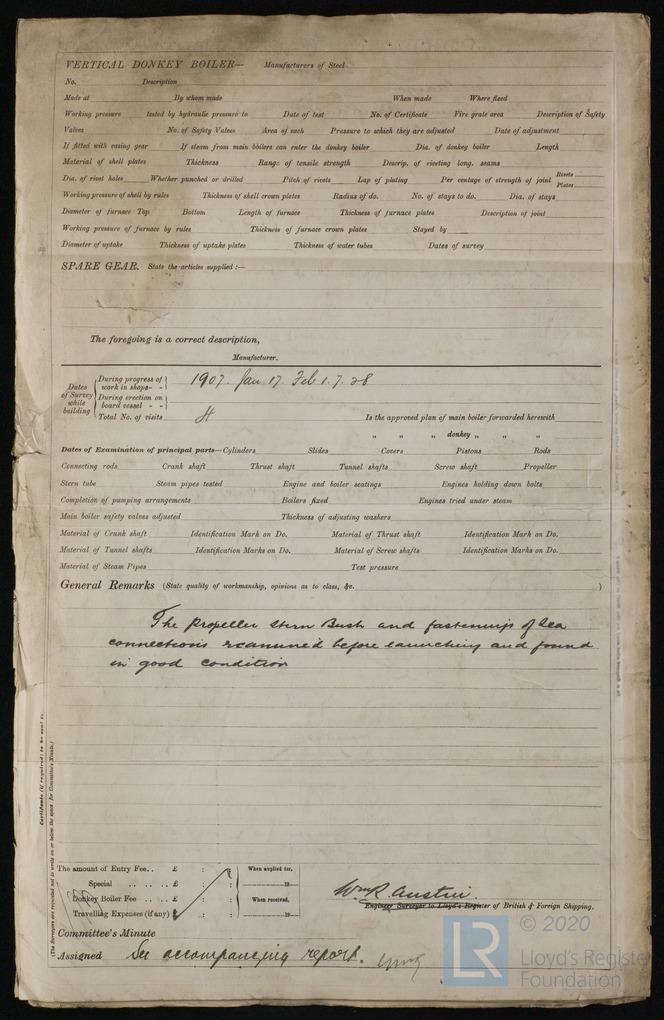 VERTICAL DONKEY BOILER— Manufacturers of Steel
No. Description
Made at By whom made When made Where fixed
Working pressure tested by hydraulic pressure to Date of test No. of Certificate Fire grate area Description of Safety
Valves No. of Safety Valves Area of each Pressure to which they are adjusted Date of adjustment
If fitted with easing gear If steam from main boilers can enter the donkey boiler Dia. of donkey boiler Length
Material of shell plates Thickness Range of tensile strength Descrip. of riveting long. seams
Dia. of rivet holes Whether punched or drilled Pitch of rivets Lap of plating Per centage of strength of joint Rivets
Plates
Working pressure of shell by rules Thickness of shell crown plates Radius of do. No. of stays to do. Dia. of stays
Diameter of furnace Top Bottom Length of furnace Thickness of furnace plates Description of joint
Working pressure of furnace by rules Thickness of furnace crown plates Stayed by
Diameter of uptake Thickness of uptake plates Thickness of water tubes Dates of survey
SPARE GEAR. State the articles supplied :—
The foregoing is a correct description,
Manufacturer.
Dates of Survey while building
During progress of work in shops - - 1907. Jan 17. Feb 1. 7. 28
During erection on board vessel - -
Total No. of visits 4
Is the approved plan of main boiler forwarded herewith
" " " donkey " " "
Dates of Examination of principal parts—Cylinders Slides Covers Pistons Rods
Connecting rods Crank shaft Thrust shaft Tunnel shafts Screw shaft Propeller
Stern tube Steam pipes tested Engine and boiler seatings Engines holding down bolts
Completion of pumping arrangements Boilers fixed Engines tried under steam
Main boiler safety valves adjusted Thickness of adjusting washers
Material of Crank shaft Identification Mark on Do. Material of Thrust shaft Identification Mark on Do.
Material of Tunnel shafts Identification Marks on Do. Material of Screw shafts Identification Marks on Do.
Material of Steam Pipes Test pressure
General Remarks (State quality of workmanship, opinions as to class, &c. )
The propeller stern Bush and fastenings of Sea
connections examined before launching and found
in good condition
Certificate (if required) to be sent to
(The Surveyors are requested not to write on or below the space for Committee's Minute.)
The amount of Entry Fee. . £ : : When applied for,
Special . . . . £ : : 19
Donkey Boiler Fee . . . £ : : When received,
Travelling Expenses (if any) £ : : 19
Wm R. Austin
Engineer Surveyor to Lloyd's Register of British & Foreign Shipping.
Committee's Minute
Assigned See accompanying report.
© 2020
LR
Lloyd's Register
Foundation